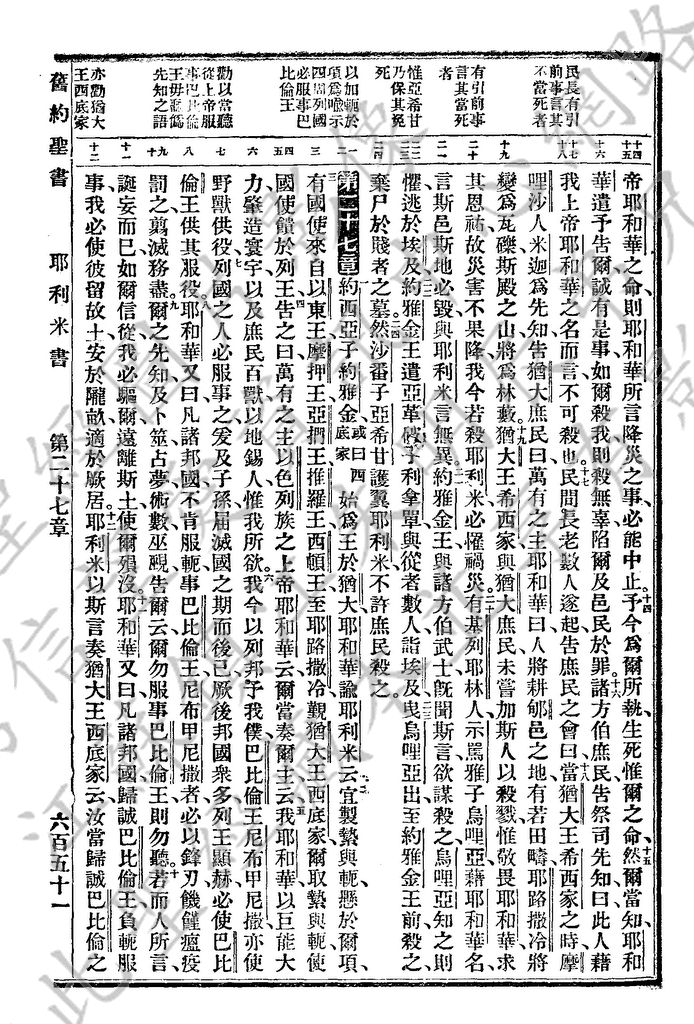 民長有引
前事言其
不當死者
有引前事
言其當死
者
惟亞希甘
乃保其免
死
以加軛於
項爲喻示
四周列國
必服事巴
比倫王
勸以當聽
從上帝服
事巴比倫
王毋聽僞
先知之語
亦勸猶大
王西底家
帝耶和華之命則耶和華所言降災之事必能中止、十四予今爲爾所執生死惟爾之命、十五然爾當知耶和
華遣予告爾誠有是事如爾殺我則殺無辜陷爾及邑民於罪、十六諸方伯庶民告祭司先知曰此人藉
我上帝耶和華之名而言不可殺也、十七民間長老數人遂起告庶民之會曰、十八當猶大王希西家之時摩
哩沙人米迦爲先知告猶大庶民曰萬有之主耶和華曰人將耕郇邑之地有若田疇耶路撒冷將
變爲瓦礫斯殿之山將爲林藪、十九猶大王希西家與猶大庶民未嘗加斯人以殺戮惟敬畏耶和華求
其恩祐故災害不果降我今若殺耶利米必懼禍災、二十有基列耶林人示罵雅子烏哩亞藉耶和華名
言斯邑斯地必毀與耶利米言無異、二一約雅金王與諸方伯武士旣聞斯言欲謀殺之烏哩亞知之則
懼逃於埃及、二二約雅金王遣亞革破子利拿單與從者數人詣埃及、二三曳烏哩亞出至約雅金王前殺之
棄尸於賤者之墓、二四然沙番子亞希甘護翼耶利米不許庶民殺之、
第二十七章 一約西亞子約雅金或曰西底家始爲王於猶大耶和華諭耶利米云、二宜製縶與軛懸於爾項、
三有國使來自以東王摩押王亞捫王推羅王西頓王至耶路撒冷覲猶大王西底家爾取縶與軛使
國使饋於列王、四告之曰萬有之主以色列族之上帝耶和華云爾當奏爾主云、五我耶和華以巨能大
力肇造寰宇以及庶民百獸以地錫人惟我所欲、六我今以列邦予我僕巴比倫王尼布甲尼撒亦使
野獸供役、七列國之人必服事之爰及子孫屆滅國之期而後已厥後邦國衆多列王顯赫必使巴比
倫王供其服役、八耶和華又曰凡諸邦國不肯服軛事巴比倫王尼布甲尼撒者必以鋒刃饑饉瘟疫
罰之翦滅務盡、九爾之先知及卜筮占夢術數巫覡告爾云爾勿服事巴比倫王則勿聽、十若而人所言
誕妄而已如爾信從我必驅爾遠離斯土使爾殞沒、十一耶和華又曰凡諸邦國歸誠巴比倫王負軛服
事我必使彼留故土安於隴畝適於厥居、十二耶利米以斯言奏猶大王西底家云汝當歸誠巴比倫之
舊約聖書 耶利米書 第二十七章 六百五十一